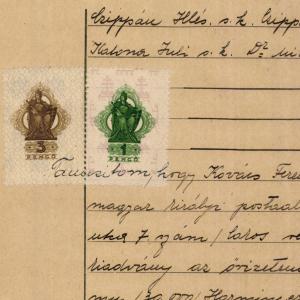 Czippán Illés s.k. Czipp
Katona Juli s.k. Dr
3 PENGŐ
1 PENGŐ
Tanusitom, hogy Kovács Fere
magyar királyi postaal
utca 7 szám/ lakos
kiadvány az őrizetem
30.000/ Harminc